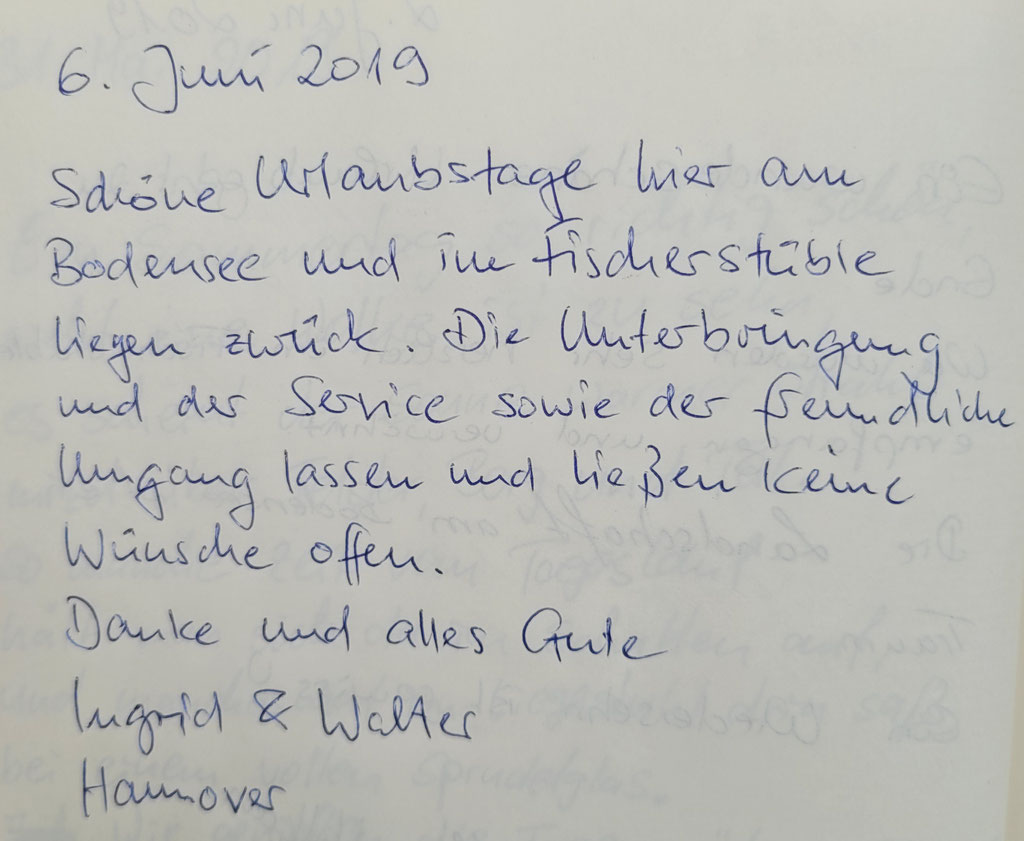 6. Juni 2019
Schöne Urlaubstage hier am
Bodensee und im Fischerstüble
liegen zurück. Die Unterbringung
und der Service sowie der freundliche
Umgang lassen und ließen keine
Wünsche offen.
Danke und alles Gute
Ingrid & Walter
Hannover